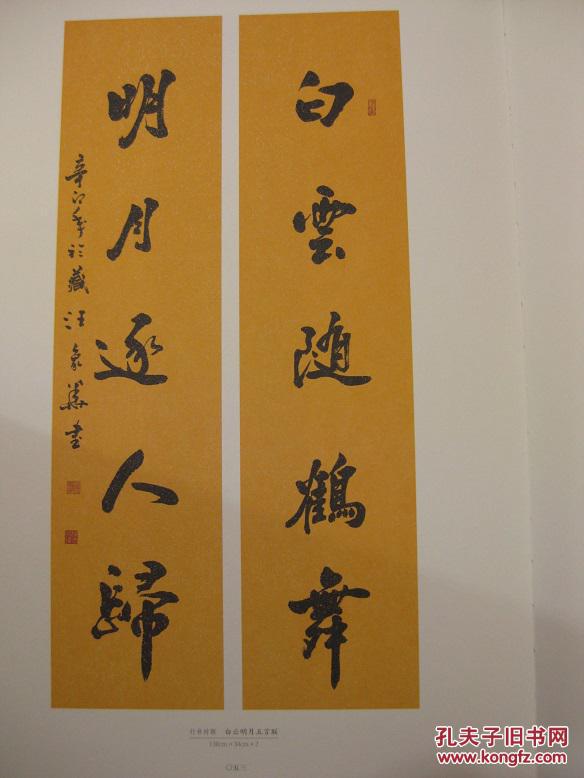 白雲随鶴舞
明月逐人歸
辛卯年於藏汪象華書
行书对联 白云明月五言联
138cm×34cm×2
〇五三
孔夫子旧书网
KONGFZ.COM